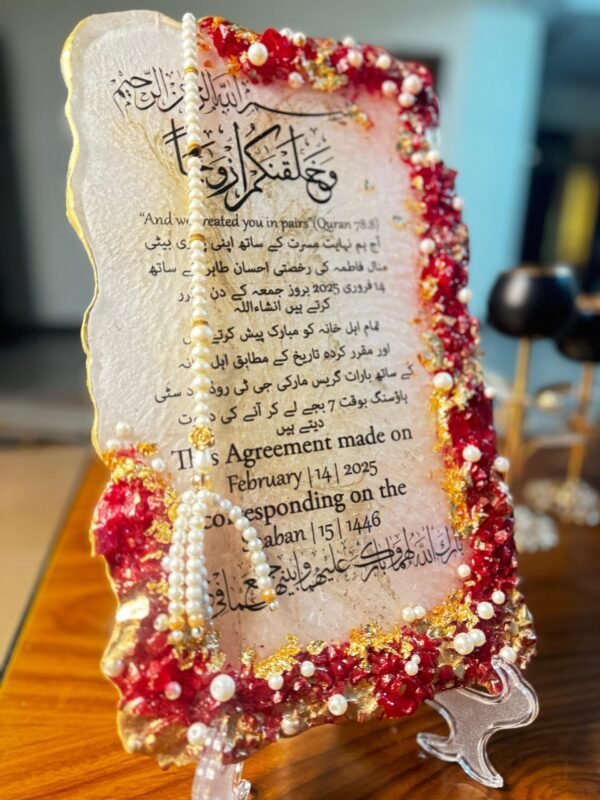 بسم الله الرحمن الرحيم
وَخَلَقْنَكُمْ أَزْوَجًا
"And we created you in pairs"(Quran 78:8)
آج ہم نہایت مسرت کے ساتھ اپنی بیٹی
منال فاطمہ کی رخصتی احسان طاہر کے ساتھ
14 فروری 2025 بروز جمعہ کے دن
کرتے ہیں انشاءاللہ
تمام اہل خانہ کو مبارک پیش کرتے
اور مقرر کردہ تاریخ کے مطابق اہل
کے ساتھ بارات گریس مارکی جی ٹی روڈ سٹی
ہاؤسنگ بوقت 7 بجے لے کر آنے کی
دیتے ہیں
This Agreement made on
February |14| 2025
corresponding on the
Shaban |15| 1446
بارك الله لهما وبارك عليهما وجمع بينهما في